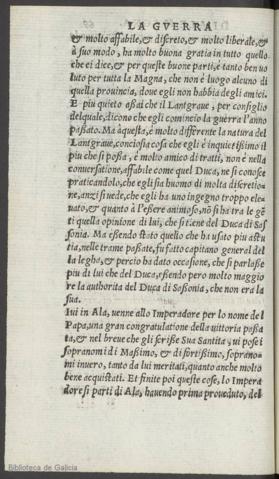 LA GVERRA
& molto affabile, & discreto, & molto liberale, &
à suo modo, ha molto buona gratia in tutto quello
che ei dice, & per queste buone parti, è tanto ben uo
luto per tutta la Magna, che non è luogo alcuno di
quella prouincia, doue egli non habbia degli amici.
E piu quieto assai che il Lantgraue, per consiglio
del quale, dicono che egli cominciò la guerra l'anno
passato. Ma à questa, è molto differente la natura del
Lantgraue, conciosia cosa che egli è inquietissimo il
piu che si possa, è molto amico di tratti, non è nella
conuersatione, affabile come quel Duca, ne si conosce
praticandolo, che egli sia huomo di molta discretio
ne, anzi si uede, che egli ha uno ingegno troppo ele
uato, & quanto à l'essere animoso, nō si ha tra le gē
ti quella opinione di lui, che si tiene del Duca di Sas
sonia. Ma essendo stato quello che ha usato piu astu
tia, nelle trame passate, fu fatto capitano general del
la legha, & percio ha dato occasione, che si parlasse
piu di lui che del Duca, essendo pero molto maggio
re la authorita del Duca di Sassonia, che non era la
sua.
Iui in Ala, uenne allo Imperadore per lo nome del
Papa, una gran congratulatione della uittoria passa
ta, & nel breue che gli scrisse Sua Santita, ui pose i
sopranomi di Massimo, & di fortissimo, soprano-
mi inuero, tanto da lui meritati, quanto anche molto
bene acquistati. Et finite poi queste cose, lo Impera
dore si parti di Ala, hauendo prima proueduto, del
Biblioteca de Galicia